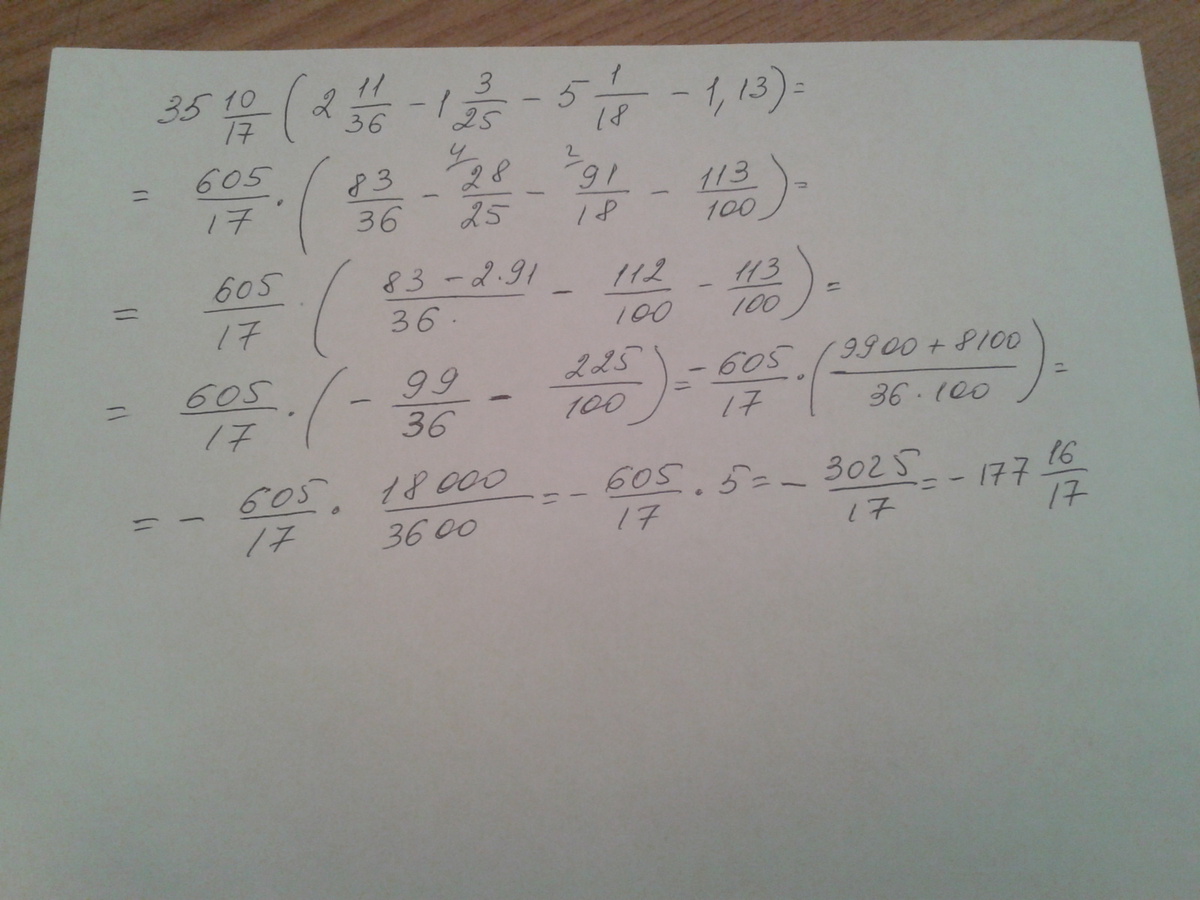 35 10/17 (2 11/36 - 1 3/25 - 5 1/18 - 1,13) =
= 605/17 · (83/36 - 4/ 28/25 - 2/ 91/18 - 113/100) =
= 605/17 · (83 - 2·91/36· - 112/100 - 113/100) =
= 605/17 · (- 99/36 - 225/100) = - 605/17 · (9900 + 8100/36·100) =
= - 605/17 · 18000/3600 = - 605/17 · 5 = - 3025/17 = - 177 16/17